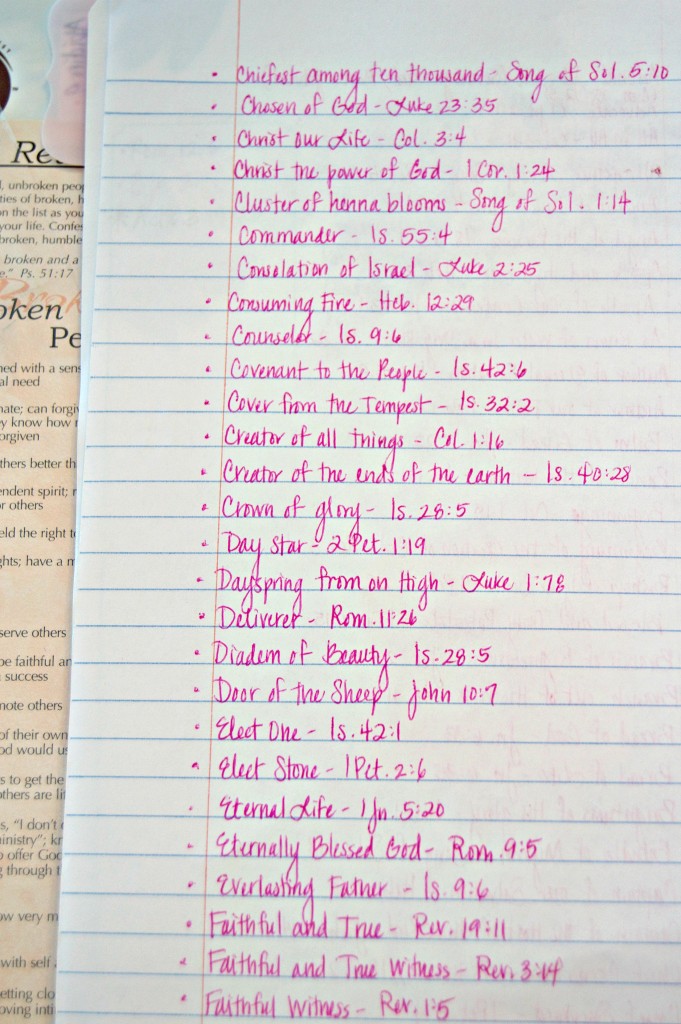 • Chiefest among ten thousand - Song of Sol. 5:10
• Chosen of God - Luke 23:35
• Christ our Life - Col. 3:4
• Christ the power of God - 1 Cor. 1:24
• Cluster of henna blooms - Song of Sol. 1:14
• Commander - Is. 55:4
• Consolation of Israel - Luke 2:25
• Consuming Fire - Heb. 12:29
• Counselor - Is. 9:6
• Covenant to the People - Is. 42:6
• Cover from the Tempest - Is. 32:2
• Creator of all things - Col. 1:16
• Creator of the ends of the earth - Is. 40:28
• Crown of glory - Is. 28:5
• Day Star - 2 Pet. 1:19
• Dayspring from on High - Luke 1:78
• Deliverer - Rom. 11:26
• Diadem of Beauty - Is. 28:5
• Door of the Sheep - John 10:7
• Elect One - Is. 42:1
• Elect Stone - 1 Pet. 2:6
• Eternal Life - 1 Jn. 5:20
• Eternally Blessed God - Rom. 9:5
• Everlasting Father - Is. 9:6
• Faithful and True - Rev. 19:11
• Faithful and True Witness - Rev. 3:14
• Faithful Witness - Rev. 1:5
, unbroken
of broken,
on the list as you
your life.
broken, humble
broken and a
Ps. 51:17
with a
al need
can
know how
others better
spirit;
others
the right
have a
serve others
be faithful
success
others
of their own
would
to get the
others are
"I don't
offer
through
very
with self